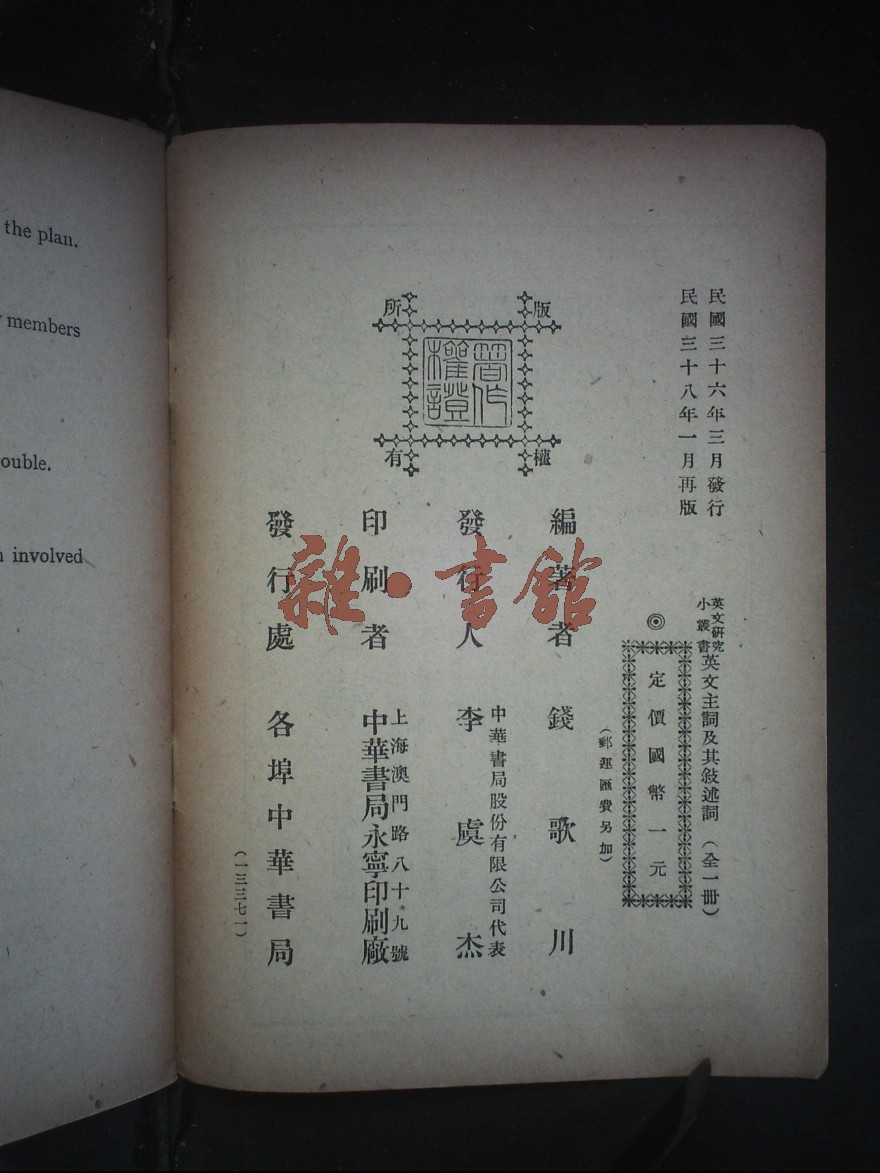 the plan.
members
ouble.
involved
民國三十六年三月發行
民國三十八年一月再版
英文研究
小叢書
英文主詞及其敍述詞（全一冊）
◎定價國幣一元
（郵運匯費另加）
版權所有
著作權證
編著者 錢歌川
發行人 中華書局股份有限公司代表
李虞杰
印刷者 上海澳門路八十九號
中華書局永寧印刷廠
發行處 各埠中華書局
（一三三七一）
雜·書館